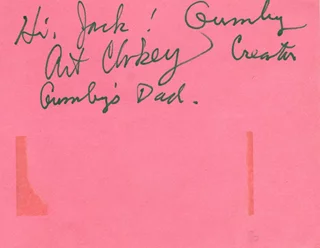 Hi, Jack! Gumby
Art Clokey Creator
Gumby's Dad.